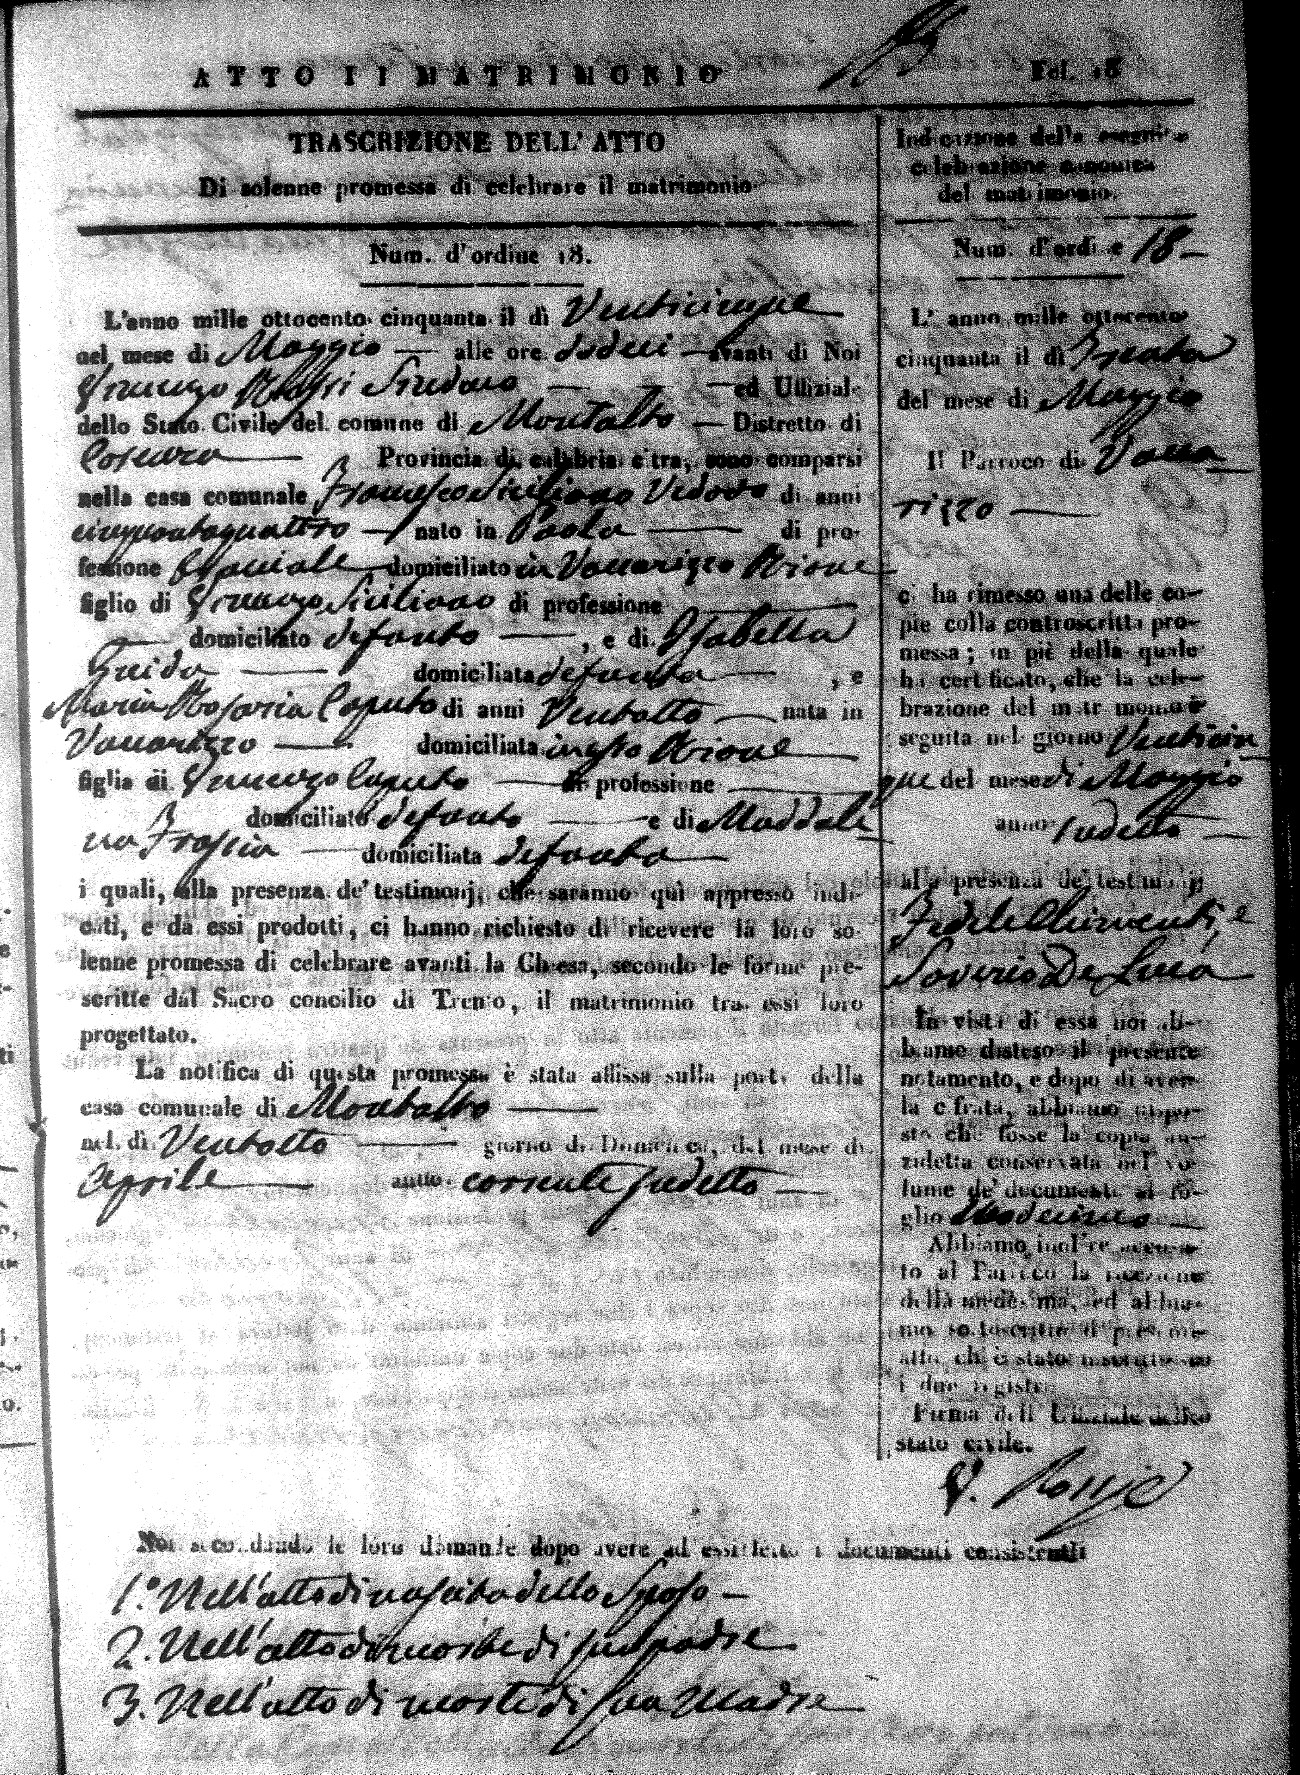 ATTO DI MATRIMONIO
Fol. 18
TRASCRIZIONE DELL' ATTO
Di solenne promessa di celebrare il matrimonio
Num. d'ordine 18.
L'anno mille ottocento cinquanta il dì Venticinque
nel mese di Maggio alle ore dodici avanti di Noi
Sindaco ed Uffizial
dello Stato Civile del comune di Montalto Distretto di
Cosenza Provincia di calabria citra, sono comparsi
nella casa comunale Francesco Siciliano Vedovo di anni
cinquantaquattro nato in Paola di pro-
fessione domiciliato in Vaccarizzo Rione
figlio di Siciliano di professione
domiciliato defunto , e di Isabella
Guido domiciliata defunta , e
Maria Rosaria Caputo di anni Ventotto nata in
Vaccarizzo domiciliata in esso Rione
figlia di Caputo di professione
domiciliato defunto e di Maddale
na domiciliata defunta
i quali, alla presenza de' testimonj, che saranno quì appresso indi-
cati, e da essi prodotti, ci hanno richiesto di ricevere la loro so-
lenne promessa di celebrare avanti la Chiesa, secondo le forme pre-
scritte dal Sacro concilio di Trento, il matrimonio tra essi loro
progettato.
La notifica di questa promessa è stata affissa sulla porta della
casa comunale di Montalto
nel dì Ventotto giorno di Domenica, del mese di
Aprile anno corrente sudetto
Indicazione della seguita
celebrazione canonica
del matrimonio.
Num. d'ordine 18
L' anno mille ottocento
cinquanta il dì Trenta
del mese di Maggio
Il Parroco di Vacca
rizzo
ci ha rimesso una delle co-
pie colla controscritta pro-
messa; in piè della quale
ha certificato, che la cele-
brazione del matrimonio è
seguita nel giorno Venticin
que del mese di Maggio
anno sudetto
alla presenza de' testimonj
Fedele Chimenti, e
Saverio De Luca
In vista di essa noi ab-
biamo disteso il presente
notamento, e dopo di aver-
la cifrata, abbiamo dispo-
sto che fosse la copia an-
zidetta conservata nel vo-
lume de' documenti al fo-
glio
Abbiamo inoltre accusa-
to al Parroco la ricezione
della medesima, ed abbia-
mo sottoscritto il presente
atto, ch' è stato inscritto su
i due registri
Firma dell' Uffiziale dello
stato civile.
Noi secondando le loro dimande dopo avere ad essi letto i documenti consistenti
1.° Nell'atto di nascita dello Sposo
2. Nell'atto di morte di suo padre
3. Nell'atto di morte di sua Madre